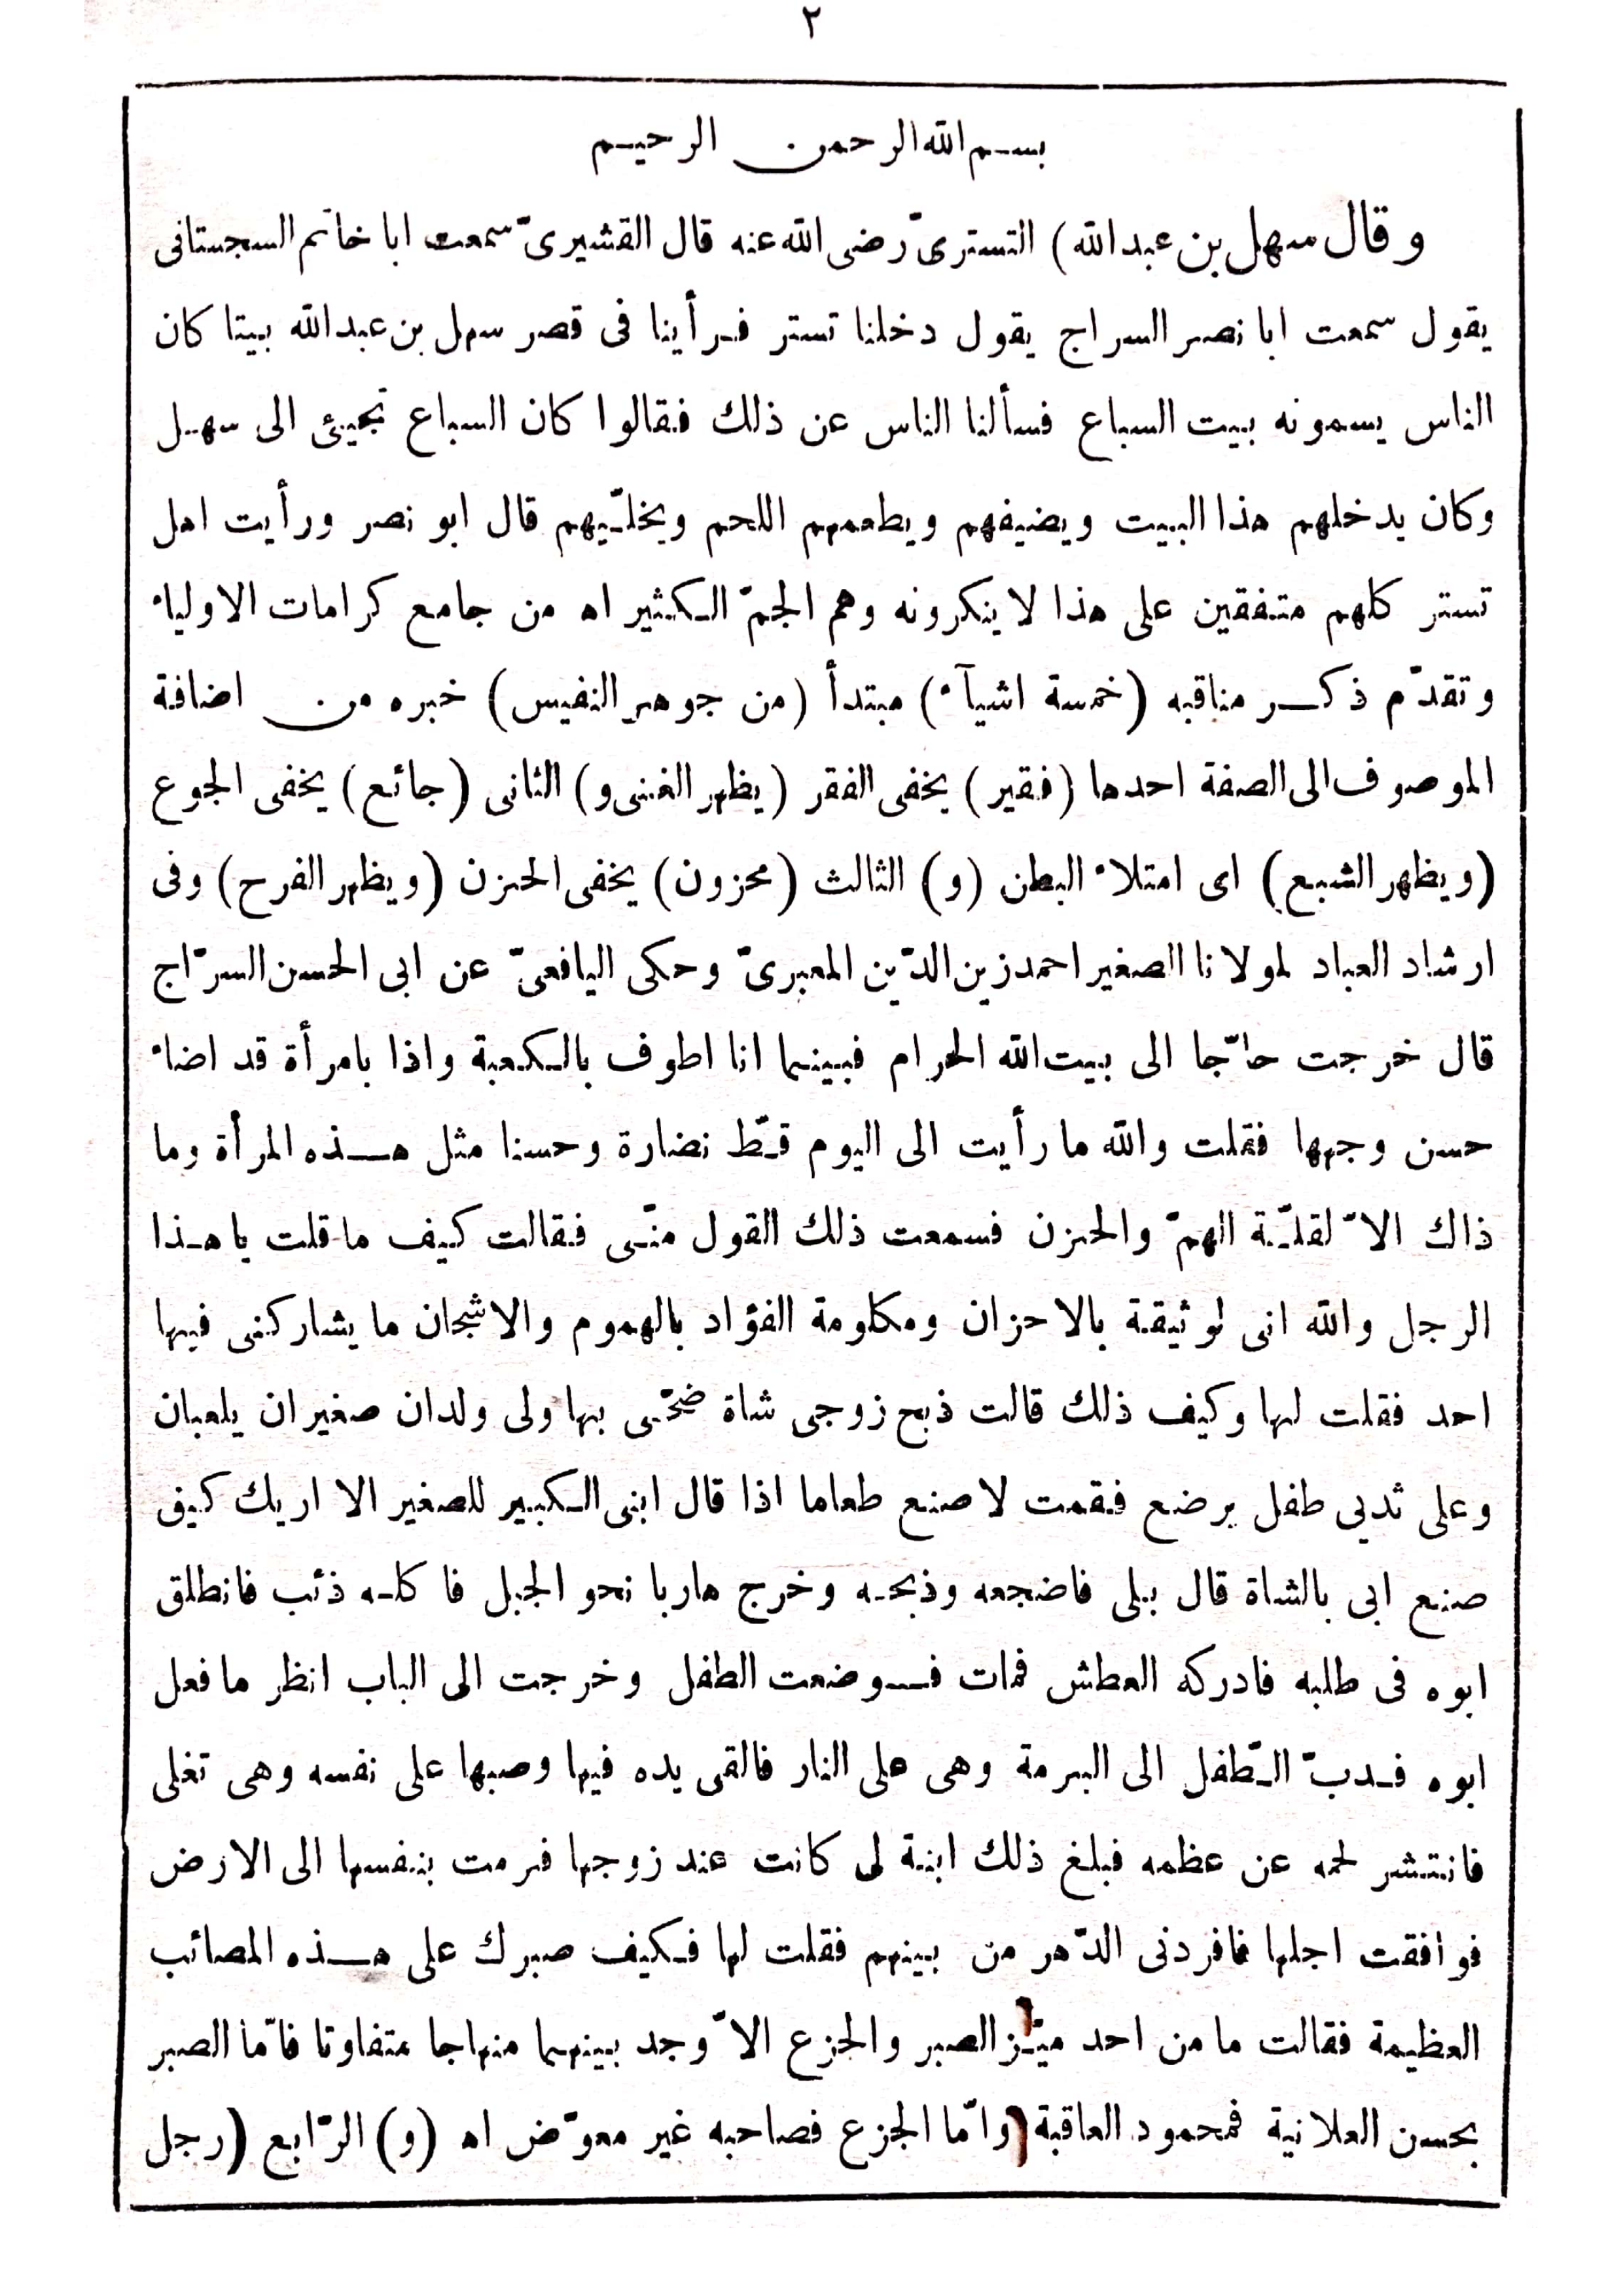 ٢
بسم الله الرحمن الرحيم
وقال سهل بن عبد الله) التستریّ رضی الله عنه قال القشیریّ سمعت ابا خاتم السجستانی
یقول سمعت ابا نصر السراج یقول دخلنا تستر فرأینا فی قصر سهل بن عبد الله بیتا کان
الناس یسمونه بیت السباع فسألنا الناس عن ذلك فقالوا کان السباع تجیئ الی سهل
وکان یدخلهم هذا البیت ویضیفهم ویطعمهم اللحم ویخلّیهم قال ابو نصر ورأیت اهل
تستر کلهم متفقین علی هذا لا ینکرونه وهم الجمّ الکثیر اه من جامع کرامات الاولیاء
وتقدّم ذکر مناقبه (خمسة اشیآء) مبتدأ (من جوهر النفیس) خبره من اضافة
الموصوف الی الصفة احدها (فقیر) یخفی الفقر (یظهر الغنی و) الثانی (جائع) یخفی الجوع
(ویظهر الشبع) ای امتلاء البطن (و) الثالث (محزون) یخفی الحزن (ویظهر الفرح) وفی
ارشاد العباد لمولانا الصغیر احمد زین الدّین المعبریّ وحکی الیافعیّ عن ابی الحسن السرّاج
قال خرجت حاجّا الی بیت الله الحرام فبینما انا اطوف بالکعبة واذا بامرأة قد اضاء
حسن وجهها فقلت والله ما رأیت الی الیوم قطّ نضارة وحسنا مثل هذه المرأة وما
ذاك الاّ لقلّة الهمّ والحزن فسمعت ذلك القول منّی فقالت کیف ما قلت یا هذا
الرجل والله انی لوثیقة بالاحزان ومکلومة الفؤاد بالهموم والاشجان ما یشارکنی فیها
احد فقلت لها وکیف ذلك قالت ذبح زوجی شاة ضحّی بها ولی ولدان صغیران یلعبان
وعلی ثدیی طفل یرضع فقمت لاصنع طعاما اذا قال ابنی الکبیر للصغیر الا اریك کیف
صنع ابی بالشاة قال بلی فاضجعه وذبحه وخرج هاربا نحو الجبل فاکله ذئب فانطلق
ابوه فی طلبه فادرکه العطش فمات فوضعت الطفل وخرجت الی الباب انظر ما فعل
ابوه فدبّ الطّفل الی البرمة وهی علی النار فالقی یده فیها وصبها علی نفسه وهی تغلی
فانتشر لحمه عن عظمه فبلغ ذلك ابنة لی کانت عند زوجها فرمت بنفسها الی الارض
فوافقت اجلها فافردنی الدّهر من بینهم فقلت لها فکیف صبرك علی هذه المصائب
العظیمة فقالت ما من احد میّز الصبر والجزع الاّ وجد بینهما منهاجا متفاوتا فامّا الصبر
بحسن العلانیة فمحمود العاقبة وامّا الجزع فصاحبه غیر معوّض اه (و) الرّابع (رجل